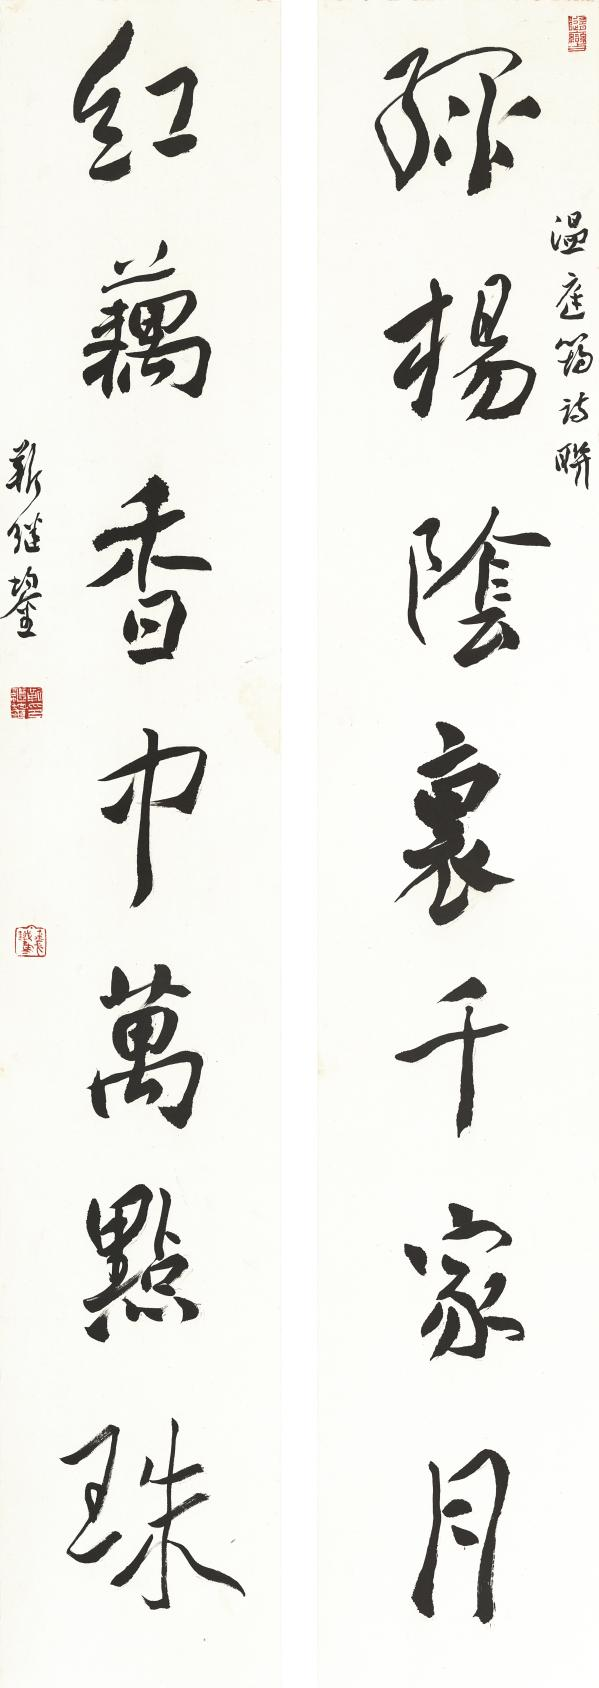 溫庭筠詩聯
綠楊陰裏千家月
紅藕香中萬點珠
靳继鋆